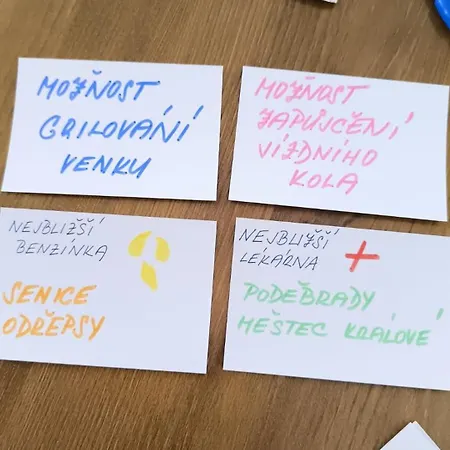 MOŽNOST
GRILOVÁNÍ
VENKU
MOŽNOST
ZAPŮJČENÍ
JÍZDNÍHO
KOLA
NEJBLIŽŠÍ
BENZÍNKA
SENICE
ODŘEPSY
NEJBLIŽŠÍ
LÉKÁRNA
PODĚBRADY
MĚSTEC KRÁLOVÉ